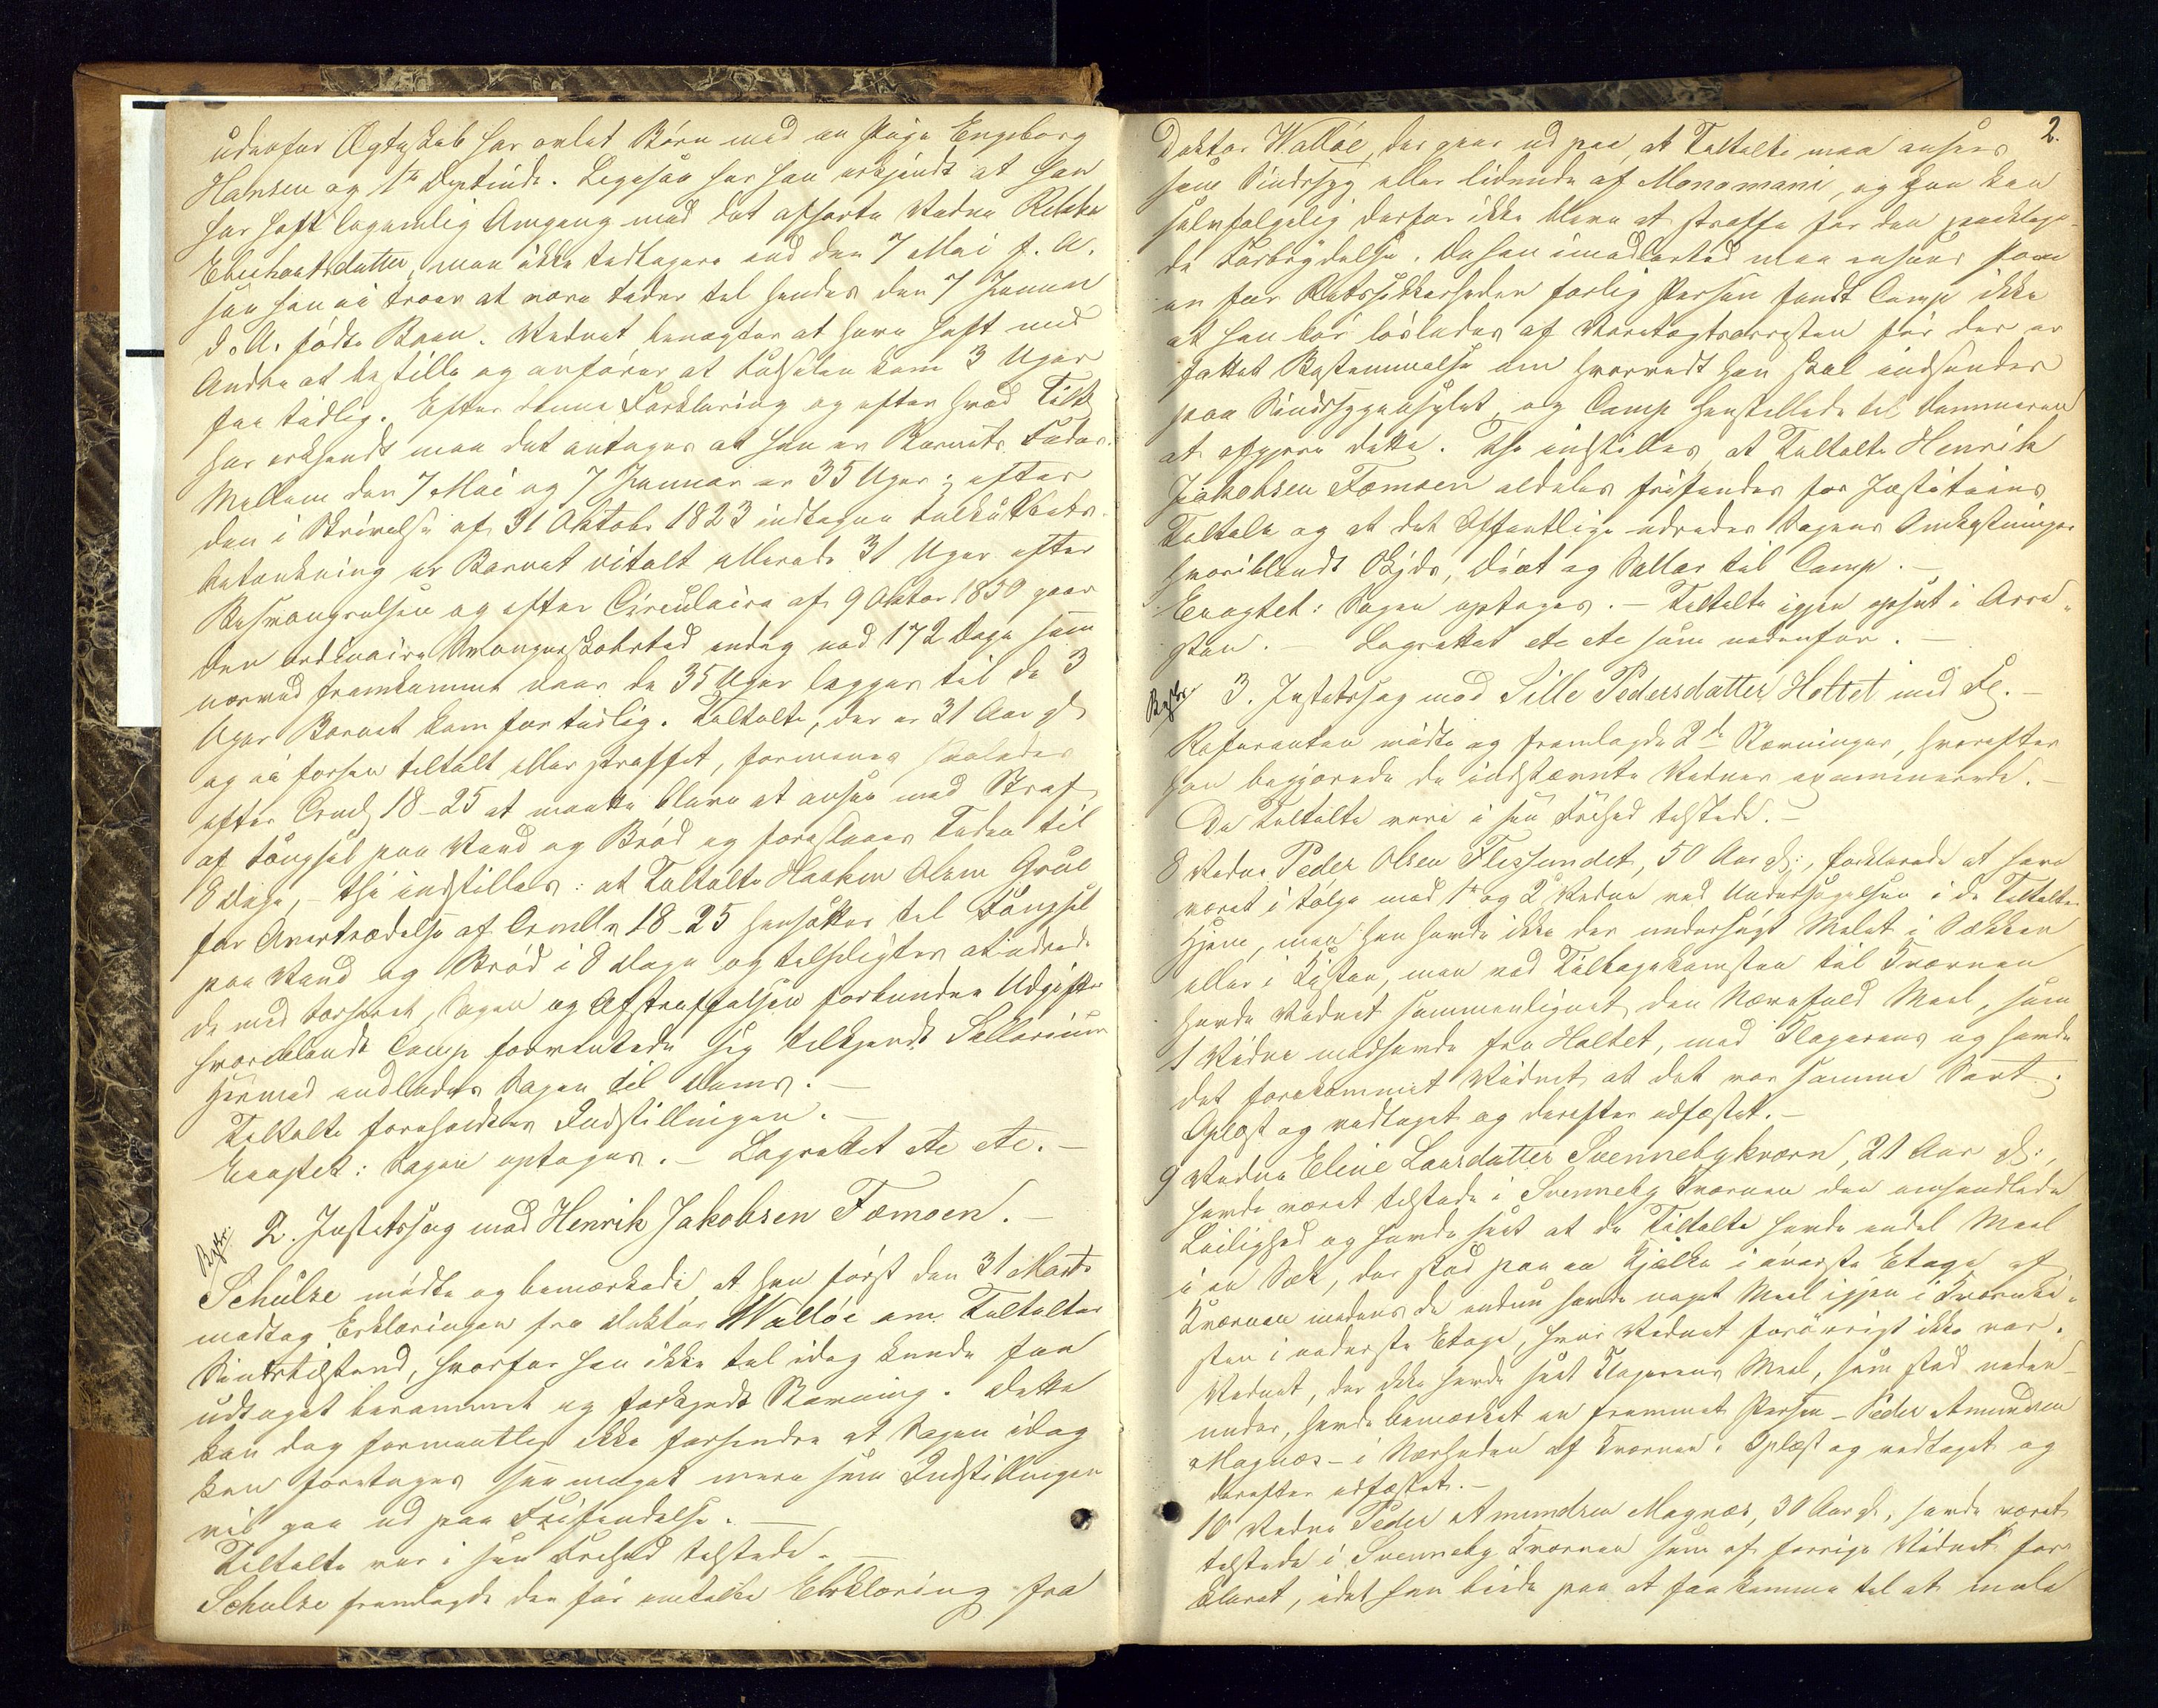 udenfor Ægteskab har avlet Børn med en Pige Engeborg
Hansen og 1te Deptinde. Ligesaa har han erkjendt at han
har haft legemlig Omgang med det afhørte Vidne Rebekka
Eberhardtsdatter, men ikke tidligere end den 7 Mai f. A.
saa han ei troer at være Fader til hendes den 7 Januar
d. A. fødte Barn. Vidnet benægter at have haft med
Andre at bestille og anfører at Fødselen kom 3 Uger
for tidlig. Efter denne Forklaring og efter hvad Tilt
har erkjendt maa det antages at han er Barnets Fader.
Mellem den 7 Mai og 7 Januar er 35 Uger; efter
den i Skrivelse af 31 Oktobr 1823 indtagne
Betænkning er Barnet vitalt allerede 31 Uger efter
Besvangrelsen og efter Circulaire af 9 Oktbr 1850 gaar
den ordinaire Svangerskabstid endog ned 272 Dage som
nærved fremkommer naar de 35 Uger lægges til de 3
Uger Barnet kom for tidlig. Tiltalte, der er 31 Aar gl
og ei forhen tiltalt eller straffet, formenes saaledes
efter Crml 18-25 at maatte blive at ansee med Straf
af Fængsel paa Vand og Brød og foreslaaes Tiden til
8 Dage, - thi indstilles: at Tiltalte Haaken Olsen Grue
for Overtrædelse af Crmlln 18-25 hensættes til Fængsel
paa Vand og Brød i 8 Dage og tilpligtes at udrede
de med Forhøret, Sagen og Afstraffelsen forbundne Udgifter
hvoriblandt Comp forventede sig tilkjendt Sallarium
Hermed indlodes Sagen til Doms. -
Tiltalte foreholdtes Indstillingen. -
Eragtet: Sagen optages. - Lagrettet etc etc. -
Bgstr. 2. Justitssag mod Henrik Jakobsen Fæmoen. -
Schulze mødte og bemærkede at han først den 31 Marts
modtog Erklæringen fra Doktor Walløe om Tiltaltes
Sindstilstand, hvorfor han ikke til idag kunde faa
udtaget berammet og forkyndt Stævning. Dette
kan dog formentlig ikke forhindre at Sagen idag
kan foretages saa meget mere som Indstillingen
vil gaa ud paa Frifindelse. -
Tiltalte var i sin Frihed tilstede. -
Schulze fremlagde den før omtalte Erklæring fra
2.
Doktor Walløe, der gaar ud paa, at Tiltalte maa ansees
som Sindssyg eller lidende af Monomani, og han kan
selvfølgelig derfor ikke blive at straffe for den paaklage-
de Forbrydelse. Da han imidlertid maa ansees som
en for Retssikkerheden farlig Person fandt Comp ikke
at han bør løslades af Varetægtsarresten før der er
fattet Bestemmelse om hvorvidt han skal indsendes
paa Sindssygeasylet, og Comp henstillede til Dommeren
at afgjøre dette. Thi indstilles, at Tiltalte Henrik
Jakobsen Fæmoen aldeles frifindes for Justitiens
Tiltale og at det Offentlige udreder Sagens Omkostninger
hvoriblandt Skyds, Diæt og Sallar til Comp. -
Eragtet: Sagen optages. - Tiltalte igjen hensat i Arre-
sten. - Lagrettet etc etc som nedenfor. -
Bgstr. 3. Justitssag mod Sille Pedersdatter Holtet med Fl. -
Referenten mødte og fremlagde 2de Stævninger, hvorefter
han begjærede de indstævnte Vidner examinerede. -
De Tiltalte vare i sin Frihed tilstede. -
8 Vidne Peder Olsen Flissundet, 50 Aar gl:, forklarede at have
været i Følge med 1te og 2de Vidne ved Undersøgelsen i de Tiltaltes
Hjem, men han havde ikke der undersøgt Melet i Sækken
eller i Kisten, men ved Tilbagekomsten til Kværnen
havde Vidnet sammenlignet den Nævefuld Meel, som
1 Vidne medhavde fra Holtet, med Klagerens og havde
det forekommet Vidnet at det var samme Sort. -
Oplæst og vedtaget og derefter edfæstet. -
9 Vidne Eline Larsdatter Svennebykværn, 21 Aar gl:,
havde været tilstede i Svenneby Kværnen den omhandlede
Leilighed og havde seet at de Tiltalte havde endel Meel
i en Sæk, der stod paa en Kjælke i øverste Etage af
Kværnen medens de endnu havde noget Meel igjen i Kværnki-
sten i nederste Etage, hvor Vidnet forøvrigt ikke var.
Vidnet, der ikke havde seet Klagerens Meel, som stod neden-
under, havde bemærket en fremmed Person - Peder Amundsen
Magnæs - i Nærheden af Kværnen. Oplæst og vedtaget og
derefter edfæstet. -
10 Vidne Peder Amundsen Magnæs, 30 Aar gl., havde været
tilstede i Svenneby Kværnen som af forrige Vidnet for-
klaret, idet han biede paa at faa komme til at male